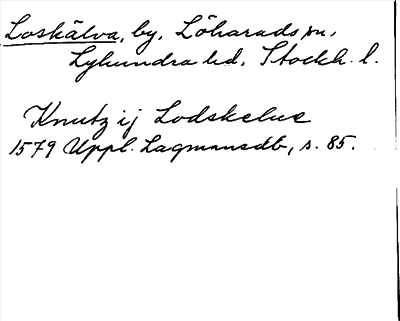 Loskälva, by, Löharads sn,
Lyhundra hd, Stockh. l.
Knutz ij Lodskelue
1579 Uppl. Lagmansdb, s. 85.